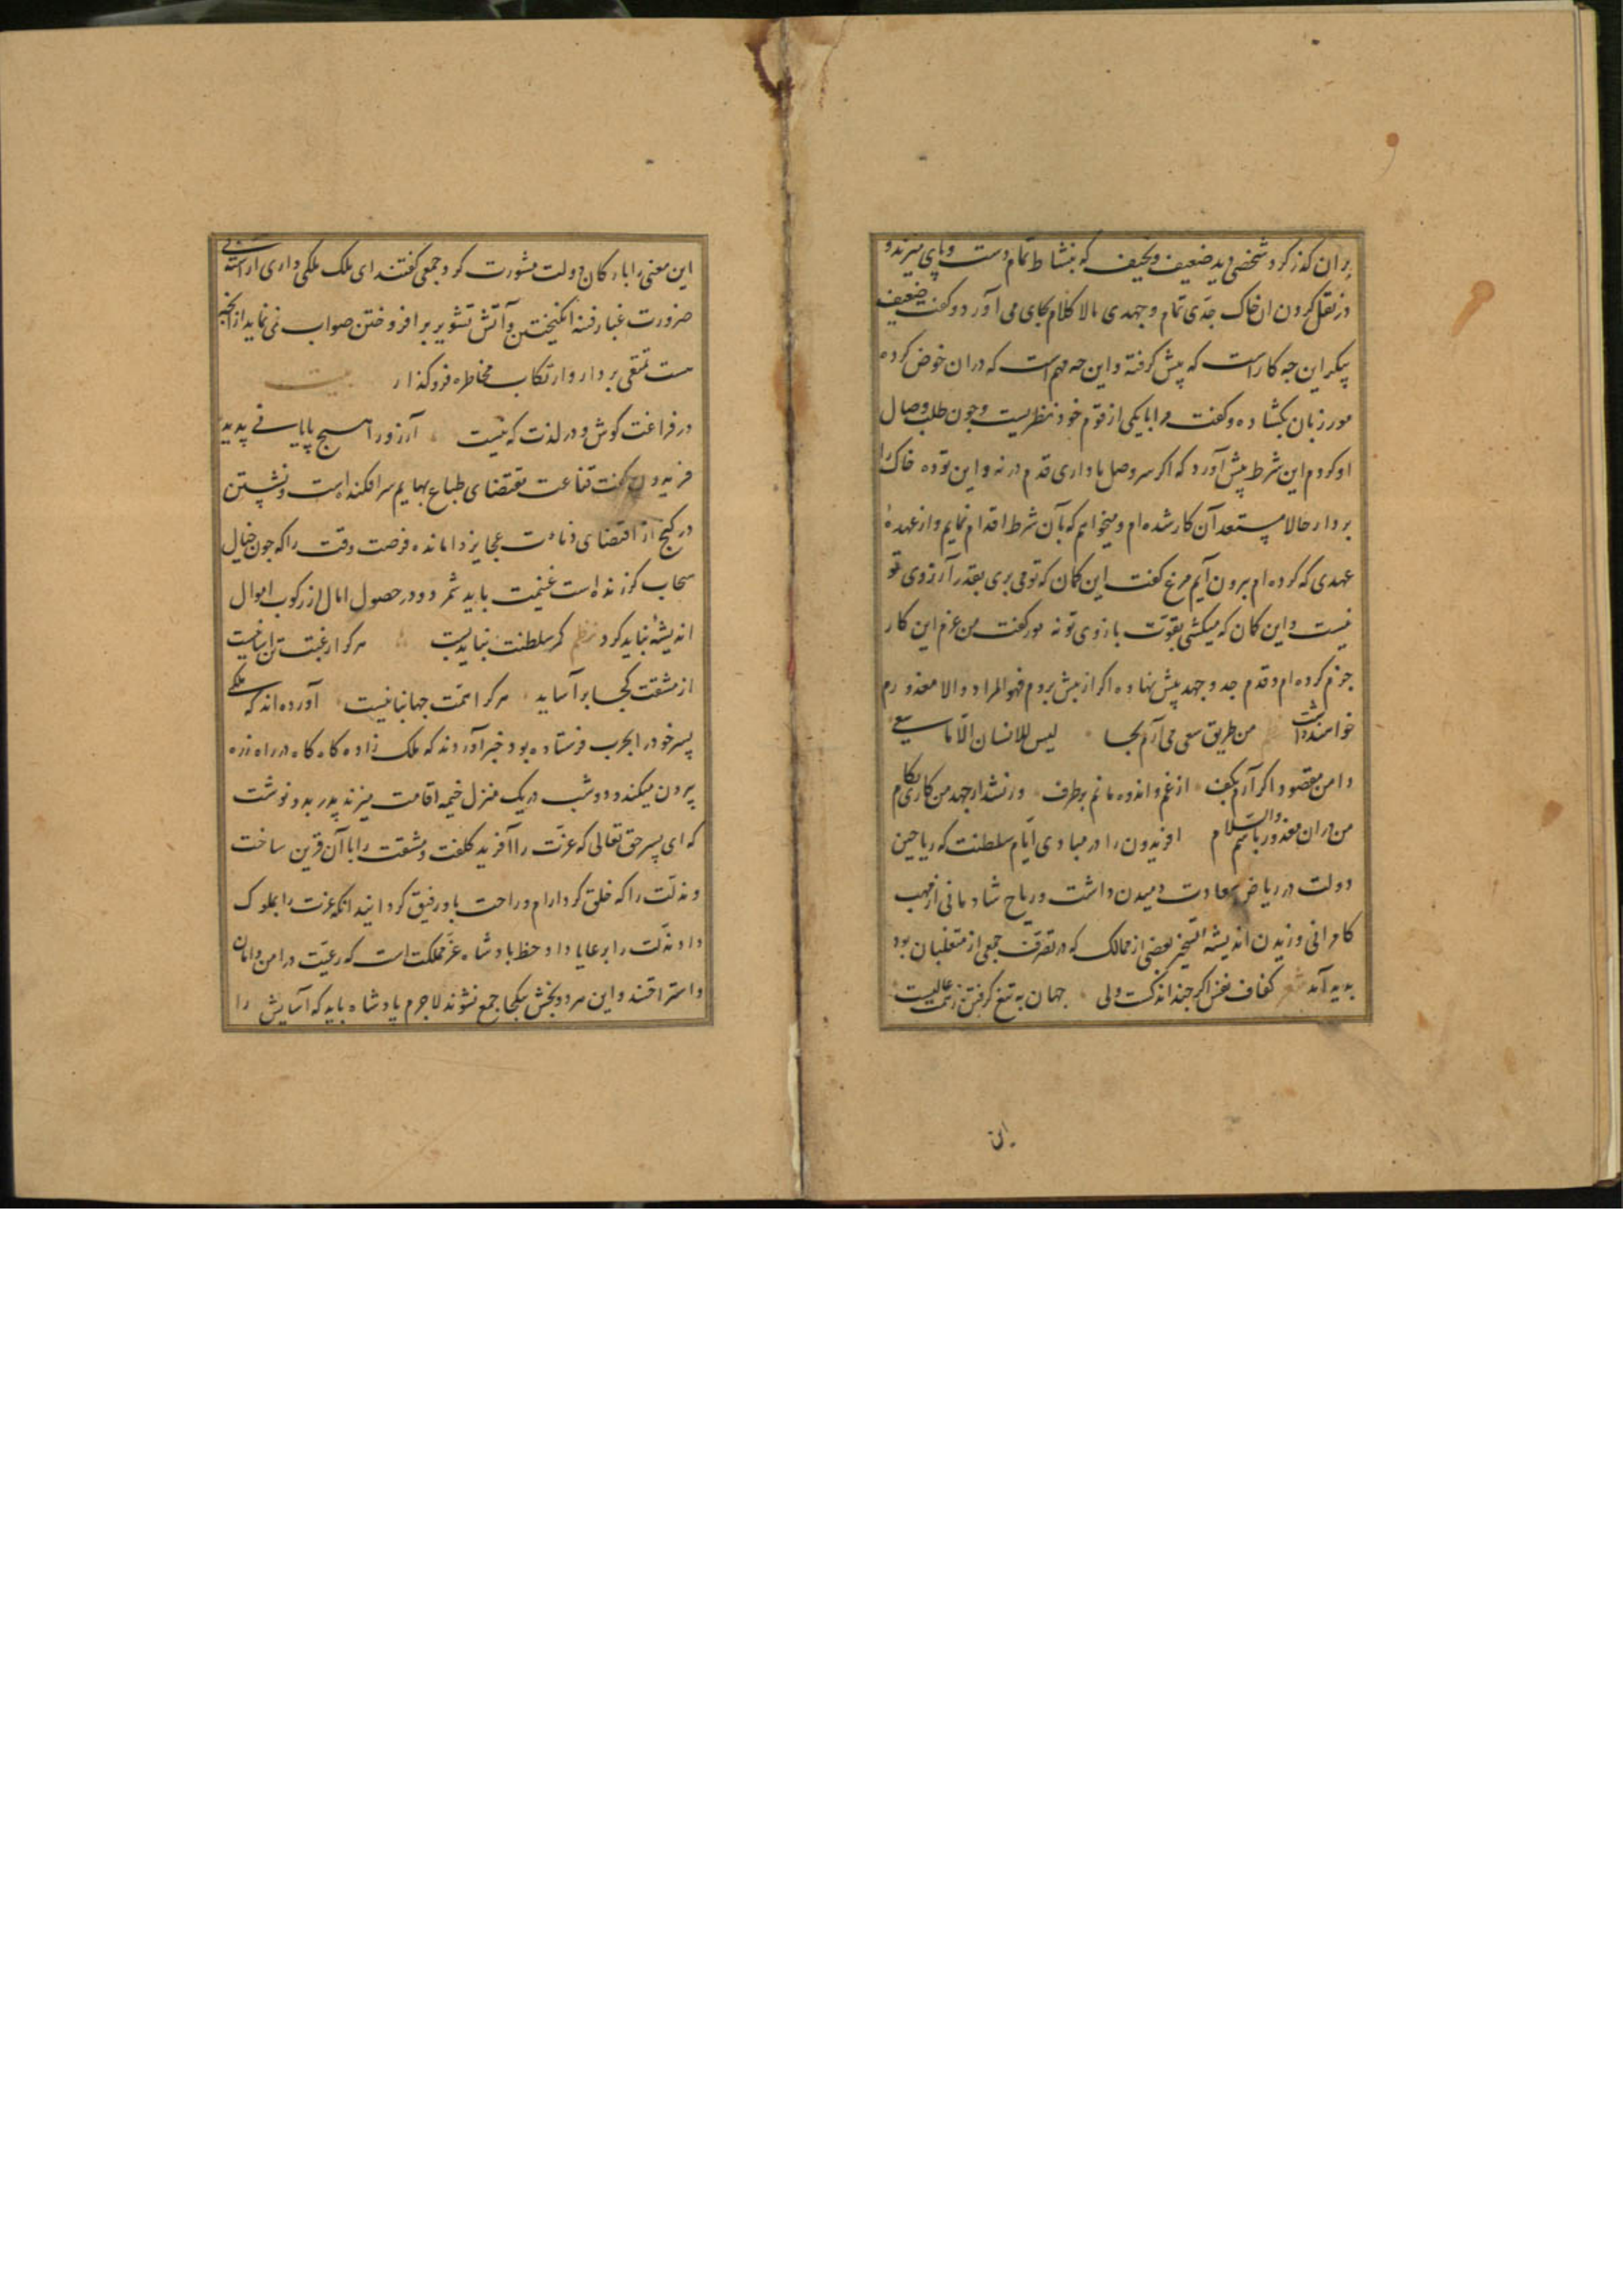 بران گذر کرد شخصی دید ضعیف و نحیف که بنشاط تمام دست و پای میزند و
در نقل کردن ان خاک جدی تمام و جهدی مالا کلام بجای می آورد و گفت ضعیف
پیکر این چه کارست که پیش گرفته و این چه مهمست که دران خوض کرده
مور زبان بکشاده و گفت مرا با یکی از قوم خود نظریست و چون طلب وصال
او کردم این شرط پیش آورد که اگر سر وصل ما داری قدم درنه و این توده خاک را
بردار حالا مستعد آن کار شده ام و میخواهم که بآن شرط اقدام نمایم و از عهدهٔ
عهدی که کرده ام برون آیم مرغ گفت این گمان که تو می بری بقدر آرزوی تو
نیست و این کمان که میکشی بقوت بازوی تو نه مور گفت من عزم این کار
جزم کرده ام و قدم جد و جهد پیش نهاده اگر از پیش بردم فهو المراد والا معذورم
خواهند داشت من طریق سعی می آرم بجا لیس للانسان الا ما سعی
دامن مقصود اگر آرم بکف از غم و اندوه مانم برطرف ور نشد از جهد من کاری بکام
من دران معذور باشم والسلام افریدون را در مبادی ایام سلطنت که ریاحین
دولت در ریاض سعادت دمیدن داشت و ریاح شادمانی از مهب
کامرانی وزیدن اندیشه تسخیر بعضی از ممالک که در تصرف جمعی از متغلبان بود
پدید آمد شعر کفاف نفس اگر چند اندکست ولی جهان به تیغ گرفتن ز همت عالیست
این معنی را با ارکان دولت مشورت کرد جمعی گفتند ای ملک ملکی داری آراسته بی
ضرورت غبار فتنه انگیختن و آتش تشویر برافروختن صواب نمی نماید از آنچه
هست تمتعی بردار و ارتکاب مخاطره فروگذار بیت
در فراغت کوش و در لذت که نیست آرزو را هیچ پایانی پدید
فریدون گفت قناعت مقتضای طباع بهایم سرافکنده است و نشستن
در کنج از اقتضای عجایز درمانده فرصت وقت را که چون خیال
سحاب گذرنده است غنیمت باید شمرد و در حصول امال از رکوب اهوال
اندیشه نباید کرد نظم گر سلطنت بباید بست هر کرا رغبت تن آسانیست
از مشقت کجا برآساید هر کرا همت جهانبانیست آورده اند که ملکی
پسر خود را بحرب فرستاده بود خبر آوردند که ملک زاده گاه گاه در راه زره
بیرون میکند و دو شب در یک منزل خیمه اقامت میزند پدر بدو نوشت
که ای پسر حق تعالی که عزت را آفرید کلفت و مشقت را با آن قرین ساخت
و مذلت را که خلق کرد ارام و راحت با او رفیق گردانید انگه عزت را بملوک
داد و مذلت را برعایا داد حظ پادشاه عز مملکت است که رعیت در امن و امان
و استراحتند و این هر دو بخش یکجا جمع نشوند لاجرم پادشاه باید که آسایش را
این